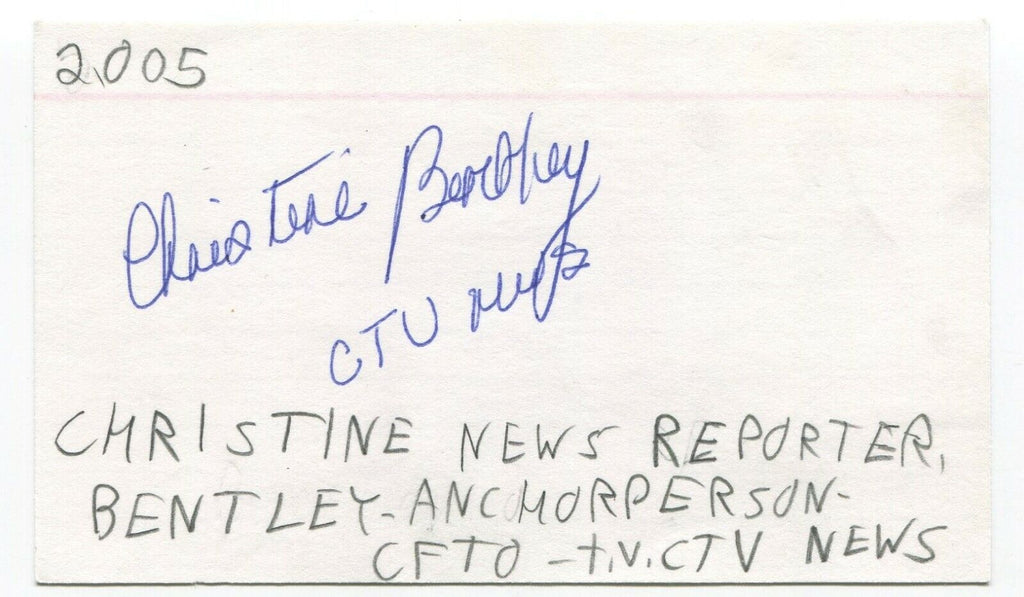 2005
Christine Bentley
CTV news
CHRISTINE NEWS REPORTER,
BENTLEY-ANCHORPERSON-
CFTO -T.V. CTV NEWS